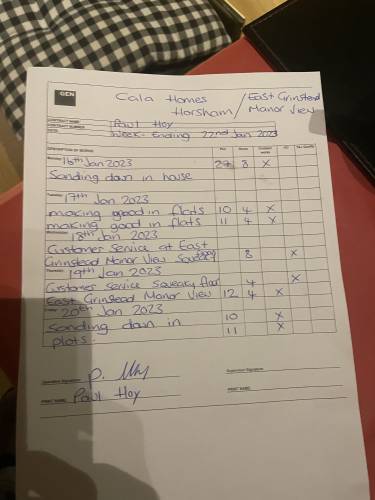 GEN
Cala Homes / East Grinstead
Horsham / Manor View
CONTRACT NAME Paul Hoy
CONTRACT NUMBER
DATE Week-Ending 22nd Jan 2023
DESCRIPTION OF WORKS Plot Hours Contract works
Monday 16th Jan 2023 8 X
Sanding down in house
Tuesday 17th Jan 2023
making good in flats 10 4 X
making good in flats 11 4 X
Wednesday 18th Jan 2023
Customer Service at East
Grinstead Manor View 8 X
Thursday 19th Jan 2023
Customer Service Squeaky floor 4 X
East Grinstead Manor View 12 4 X
Friday 20th Jan 2023
Sanding down in 10 X
plots. 11 X
Operative Signature P. Hoy Supervisor Signature
PRINT NAME Paul Hoy PRINT NAME